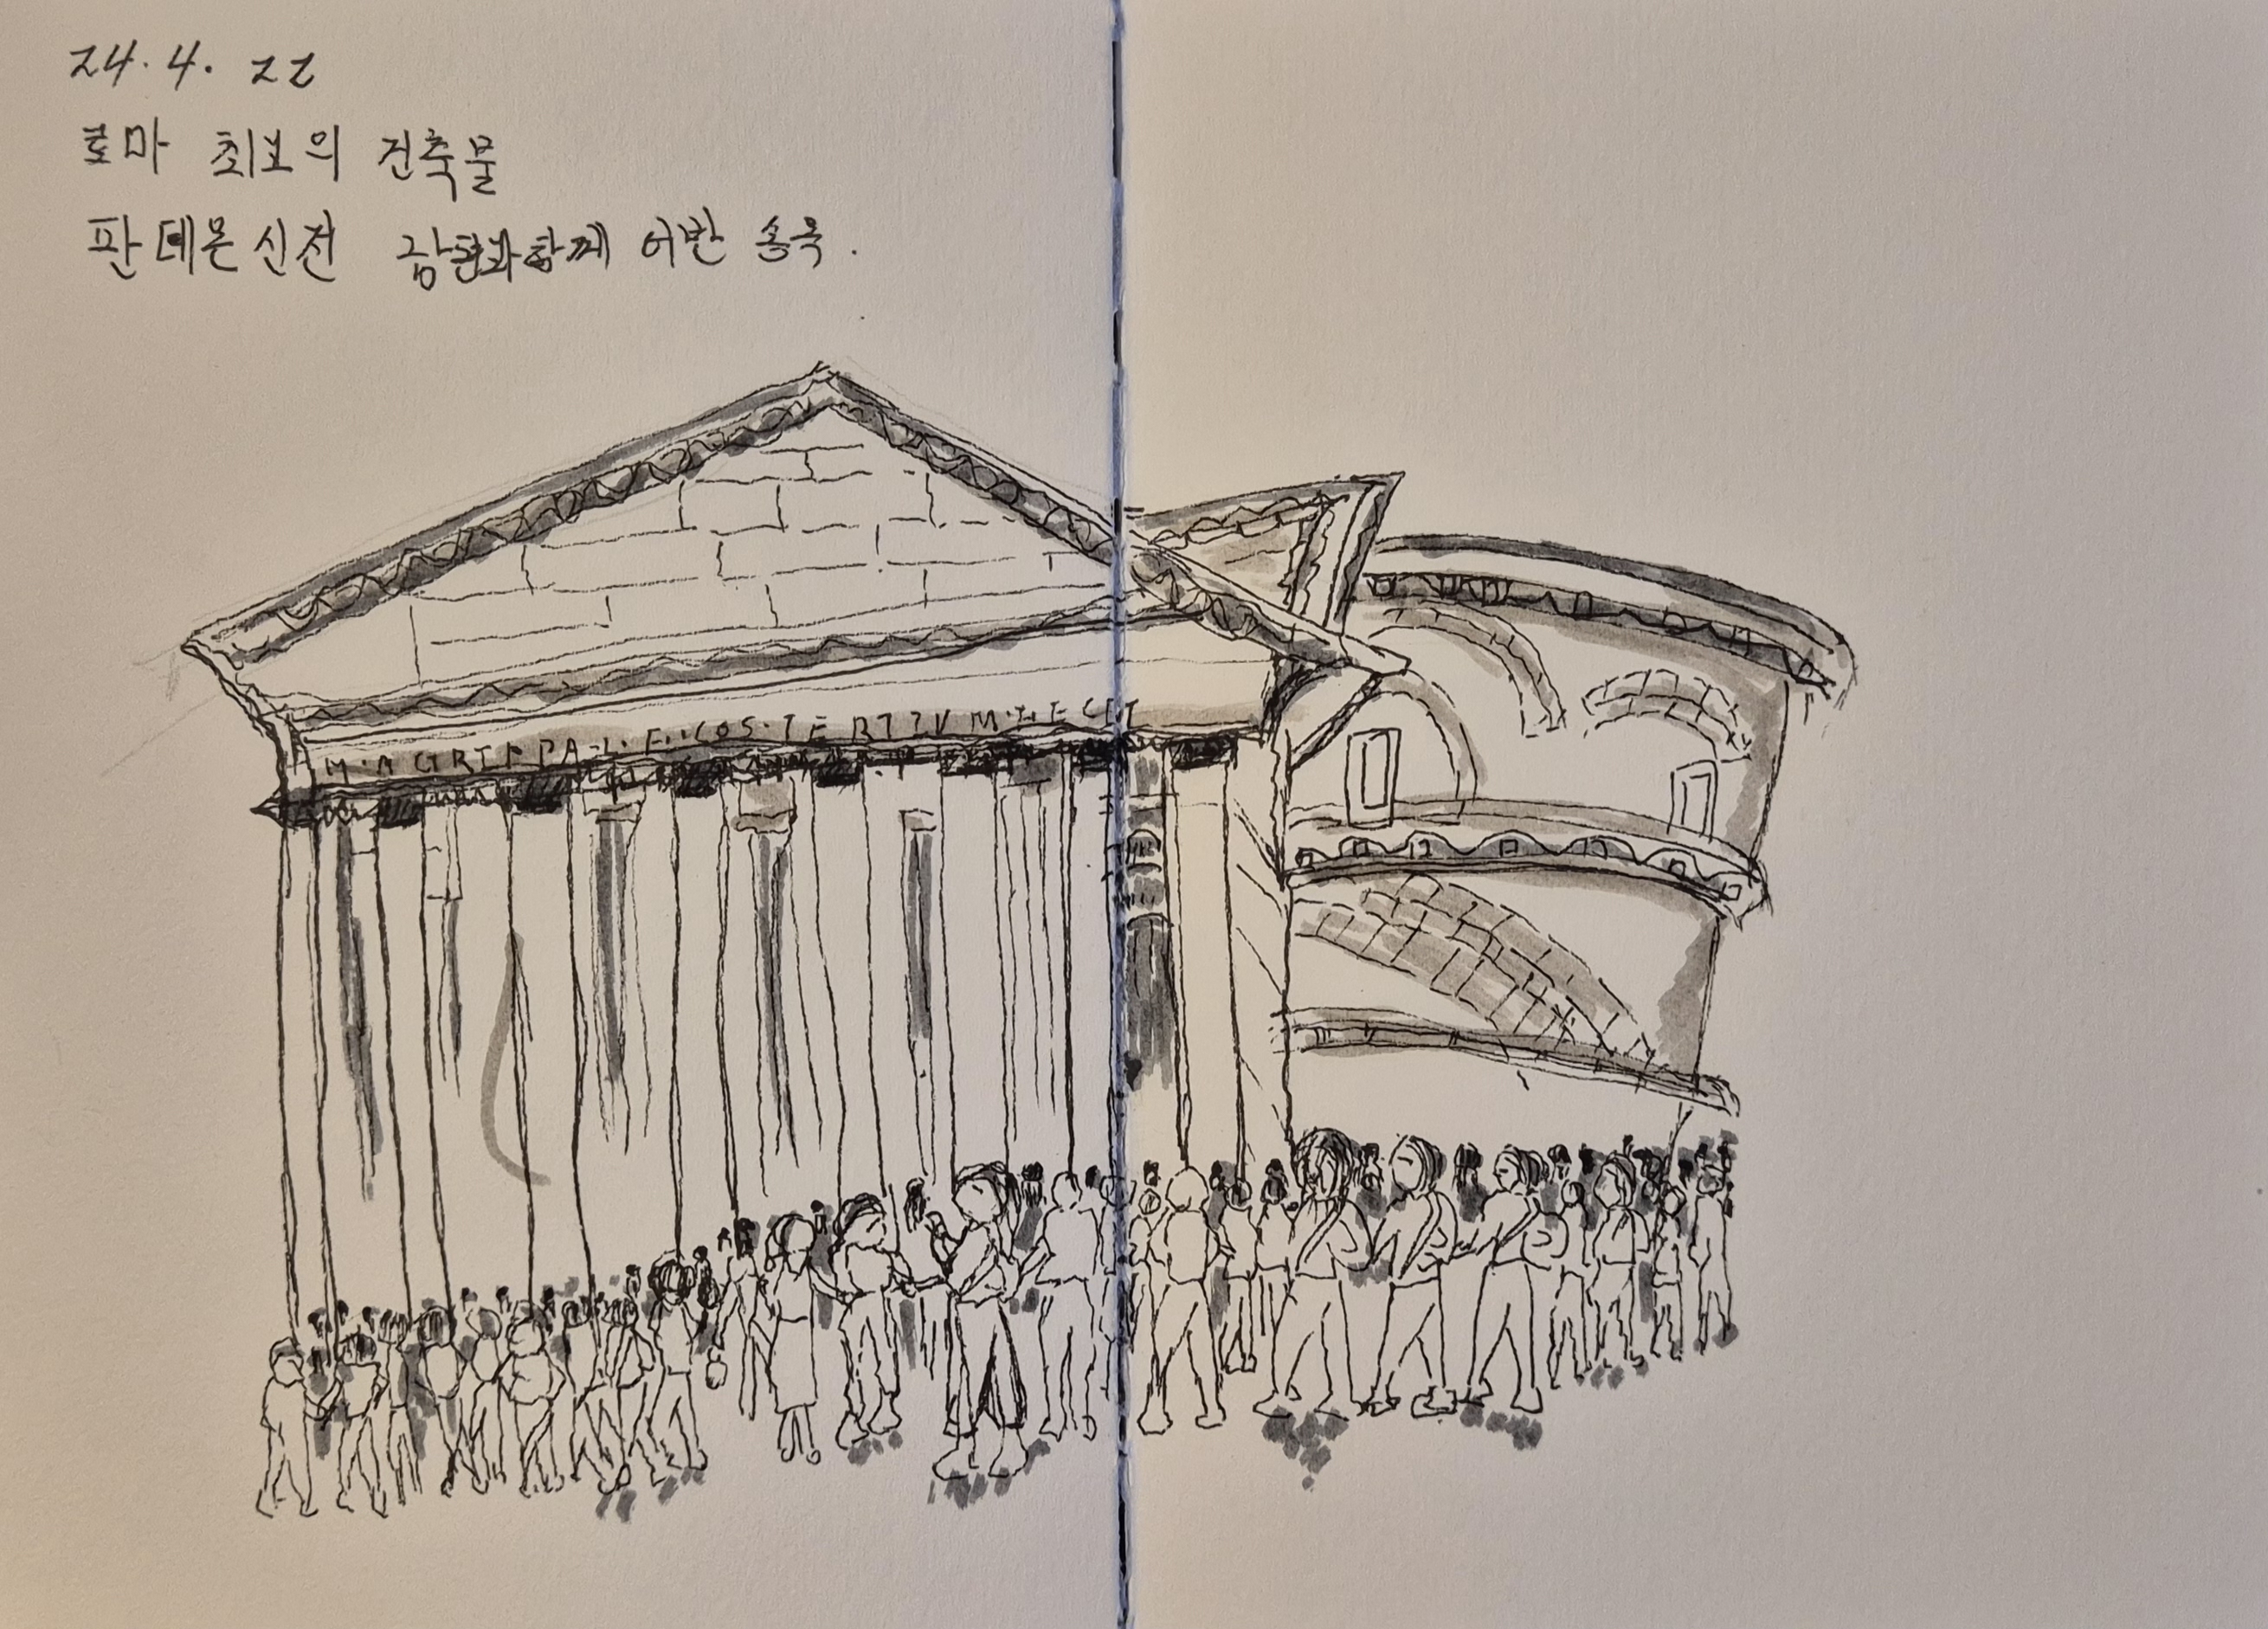 24. 4. 22
로마 최고의 건축물
판테온 신전 함께 어반
M·AGRIPPA·L·F·COS·TERTIVM·FECIT